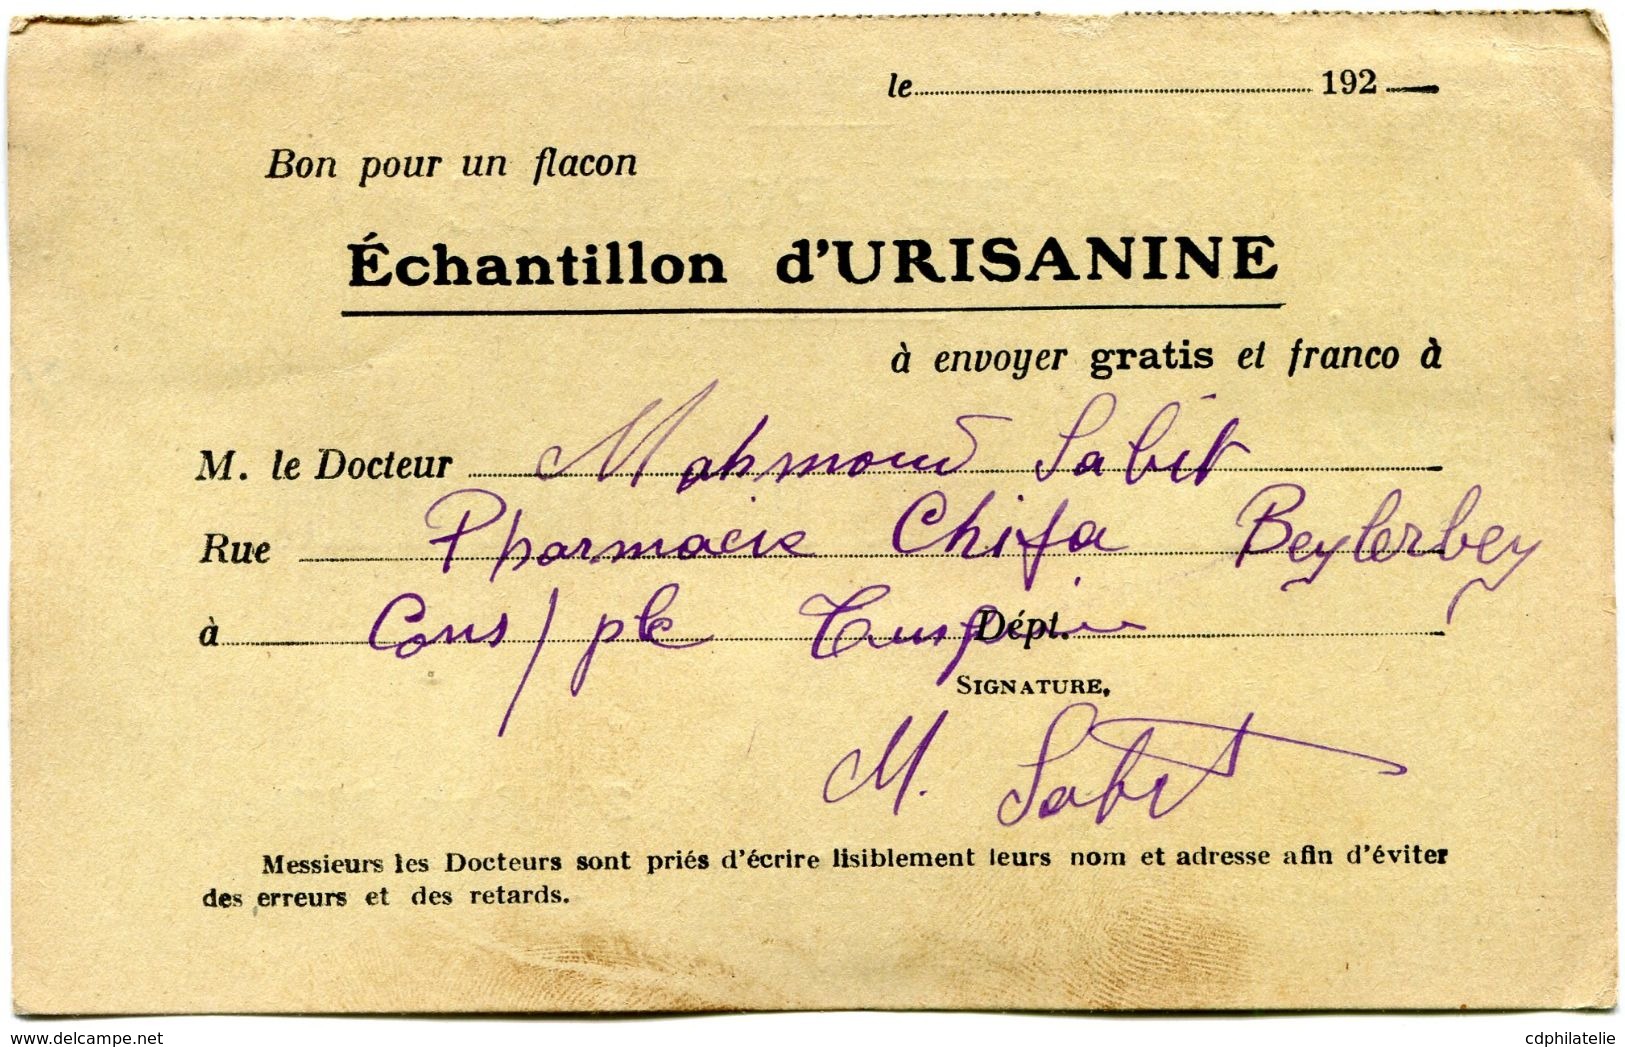 le 192
Bon pour un flacon
Échantillon d'URISANINE
à envoyer gratis et franco à
M. le Docteur Mahmoud Sabit
Rue Pharmacie Chifa Beylerbey
à Cons/ple Dépt.
SIGNATURE,
M. Sabit
Messieurs les Docteurs sont priés d'écrire lisiblement leurs nom et adresse afin d'éviter
des erreurs et des retards.
delcampe.net
cdphilatelie